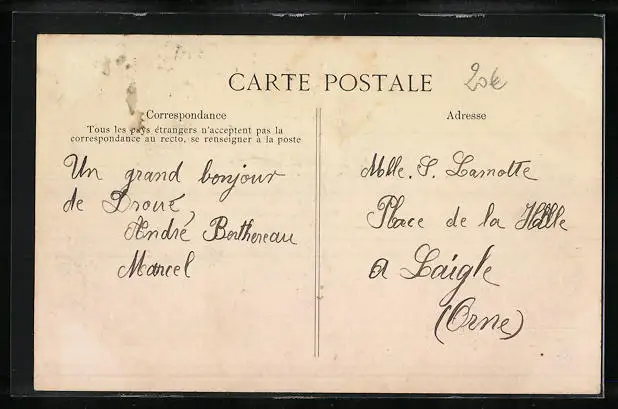 CARTE POSTALE
20k
Correspondance
Tous les pays étrangers n'acceptent pas la
correspondance au recto, se renseigner à la poste
Un grand bonjour
de Droué
André Berthereau
Marcel
Adresse
Mlle. S. Lamotte
Place de la Halle
a Laigle
(Orne)